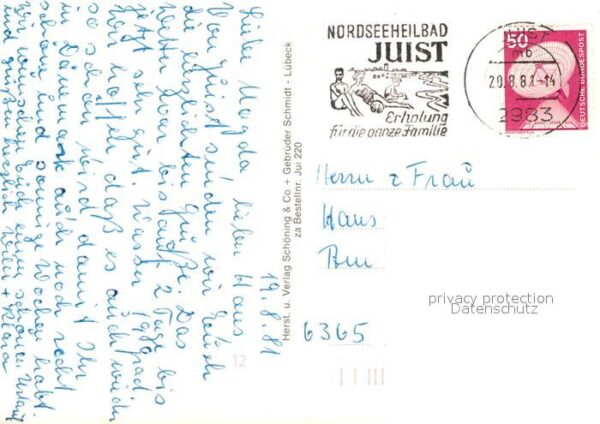 NORDSEEHEILBAD
JUIST
Erholung
für die ganze Familie
JUIST
mb
20.8.81-14
2983
50
DEUTSCHE BUNDESPOST
19.8.81
Liebe Magda lieber Hans
Von Juist senden wir Euch
die herzlichsten Grüße. Das
Wetter war bis auf 2 Tage bis
jetzt sehr gut. Wasser 19 Grad
wir hoffen daß es auch wieder
so schön wird, damit Ihr
in Dänemark auch noch recht
schöne und sonnige Wochen habt
wir wünschen Euch einen schönen Urlaub
und grüßen herzlich
Herst. u. Verlag Schöning & Co + Gebrüder Schmidt - Lübeck
za Bestellnr. Jui 220
Herrn u Frau
Hans
6365
12
privacy protection
Datenschutz